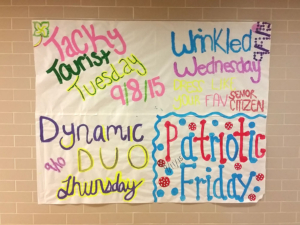 Tacky
Tourist
Tuesday
9/8/15
Wrinkled
Wednesday
DRESS LIKE
YOUR FAV
SENIOR
CITIZEN
Dynamic
DUO
Thursday
Patriotic
Friday